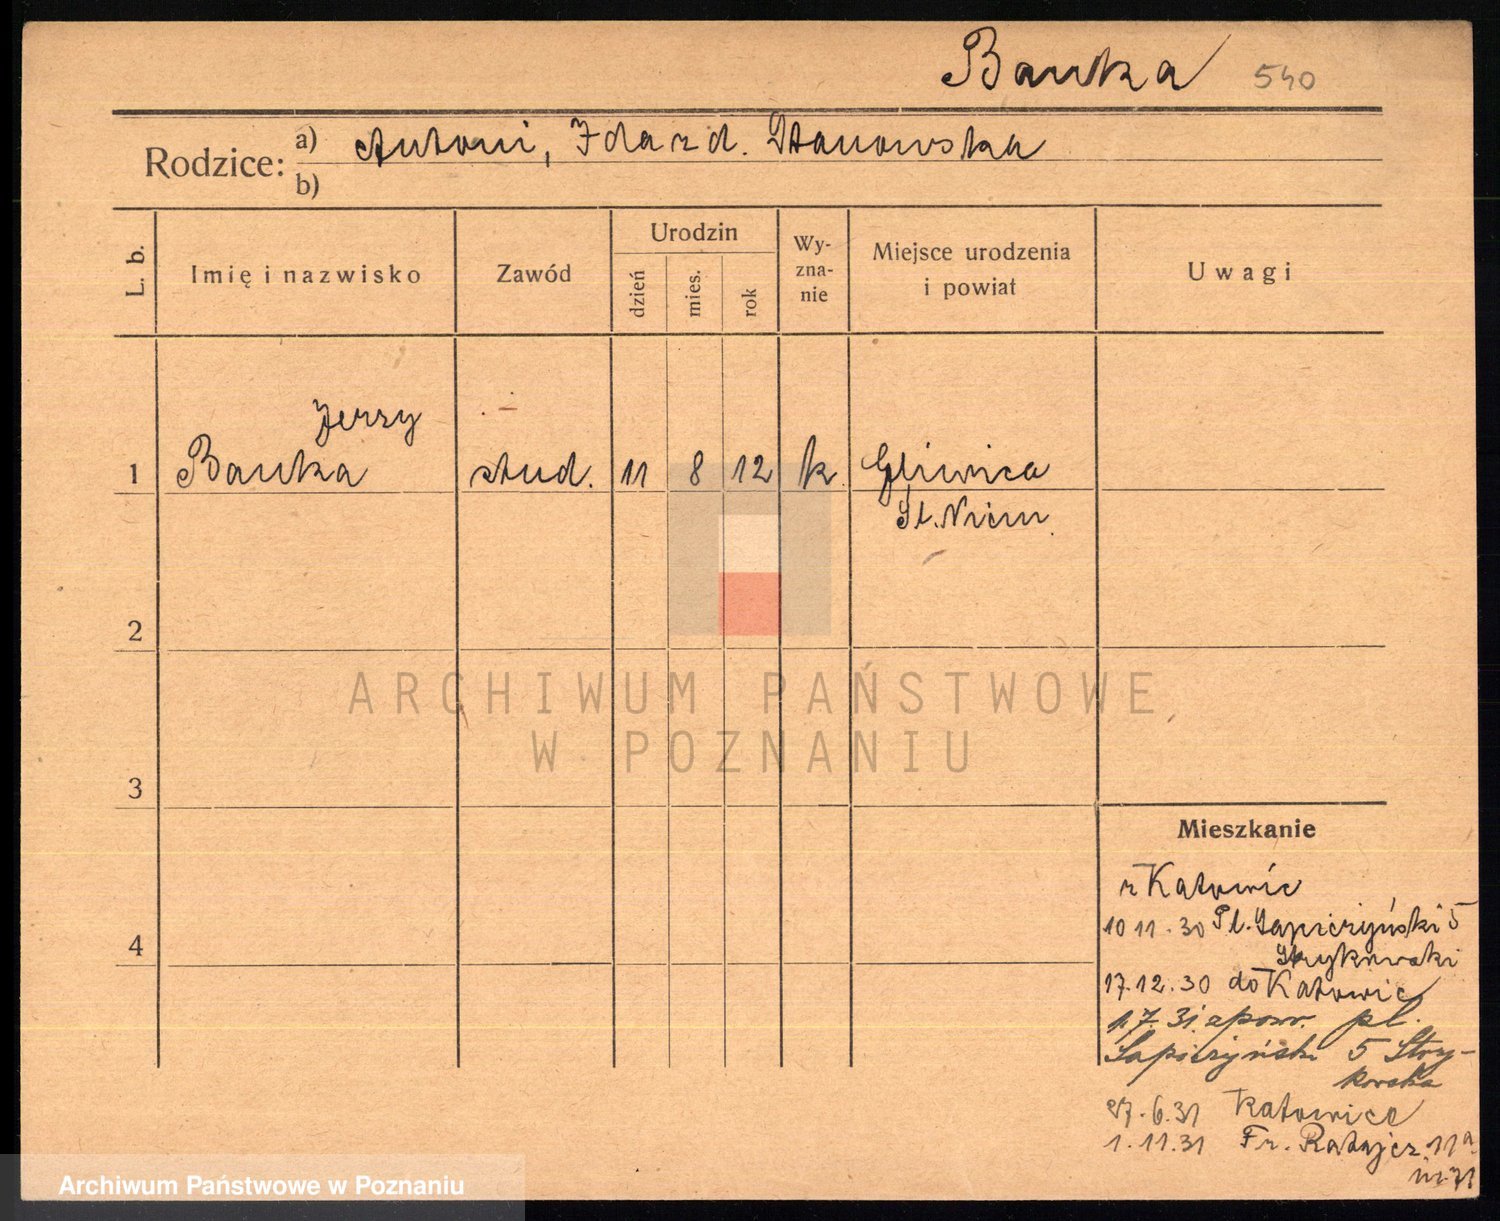 Bańka 540
Rodzice: a) Antoni, Ida z d. Stanowska
b)
L. b. Imię i nazwisko Zawód Urodzin dzień mies. rok Wyznanie Miejsce urodzenia i powiat Uwagi
Jerzy
1 Bańka stud. 11 8 12 k Gliwica
Śl. Niem.
2
ARCHIWUM PAŃSTWOWE
W POZNANIU
3
Mieszkanie
z Katowic
4
10 11.30 Pl. Sapieżyński 5
Strykowski
17.12.30 do Katowic
7.31 zpow. pl.
Sapieżyński 5 Stry-
kowska
27.6.31 Katowice
1.11.31 Fr. Ratajcz. 11a
m. 71
Archiwum Państwowe w Poznaniu